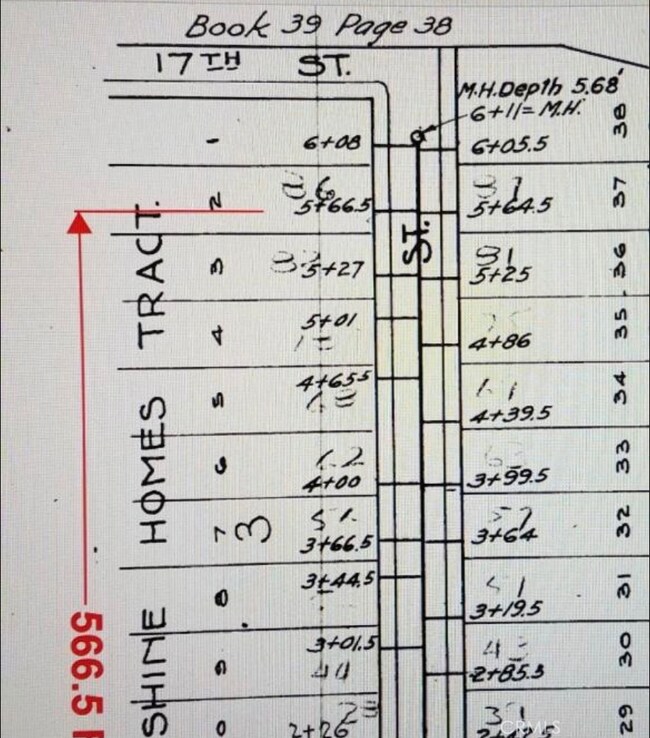 Book 39 Page 38
17TH ST.
M.H. Depth 5.68'
6+11= M.H.
1
6+08
6+05.5
38
2
5+66.5
87
5+64.5
37
ST.
3
83
5+27
81
5+25
36
4
5+01
4+86
35
5
4+65.5
4+39.5
34
6
62
4+00
63
3+99.5
33
7
3
3+66.5
57
3+64
32
8
3+44.5
51
3+19.5
31
9
3+01.5
44
43
2+85.5
30
0
2+26
29
SHINE HOMES TRACT.
566.5
CRMLS